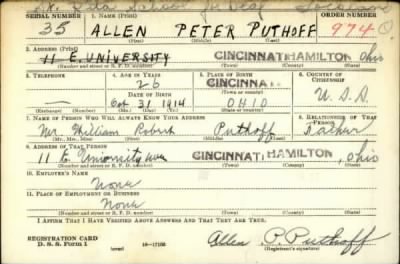 St. Rita School for Deaf
SERIAL NUMBER 1. NAME (Print) ORDER NUMBER
35 ALLEN PETER PUTHOFF 974
(First) (Middle) (Last)
2. ADDRESS (Print)
11 E. UNIVERSITY CINCINNATI HAMILTON Ohio
(Number and street or R. F. D. number) (Town) (County) (State)
3. TELEPHONE 4. AGE IN YEARS 5. PLACE OF BIRTH 6. COUNTRY OF CITIZENSHIP
26 CINCINNATI
DATE OF BIRTH (Town or county)
Oct 31 1914 OHIO U. S. A
(Exchange) (Number) (Mo.) (Day) (Yr.) (State or country)
7. NAME OF PERSON WHO WILL ALWAYS KNOW YOUR ADDRESS 8. RELATIONSHIP OF THAT PERSON
Mr. William Robert Puthoff Father
(Mr., Mrs., Miss) (First) (Middle) (Last)
9. ADDRESS OF THAT PERSON
11 E University ave CINCINNATI HAMILTON, Ohio
(Number and street or R. F. D. number) (Town) (County) (State)
10. EMPLOYER'S NAME
None
11. PLACE OF EMPLOYMENT OR BUSINESS
None
(Number and street or R. F. D. number) (Town) (County) (State)
I AFFIRM THAT I HAVE VERIFIED ABOVE ANSWERS AND THAT THEY ARE TRUE.
REGISTRATION CARD
D. S. S. Form 1 (over) 16—17105 Allen P. Puthoff
(Registrant's signature)